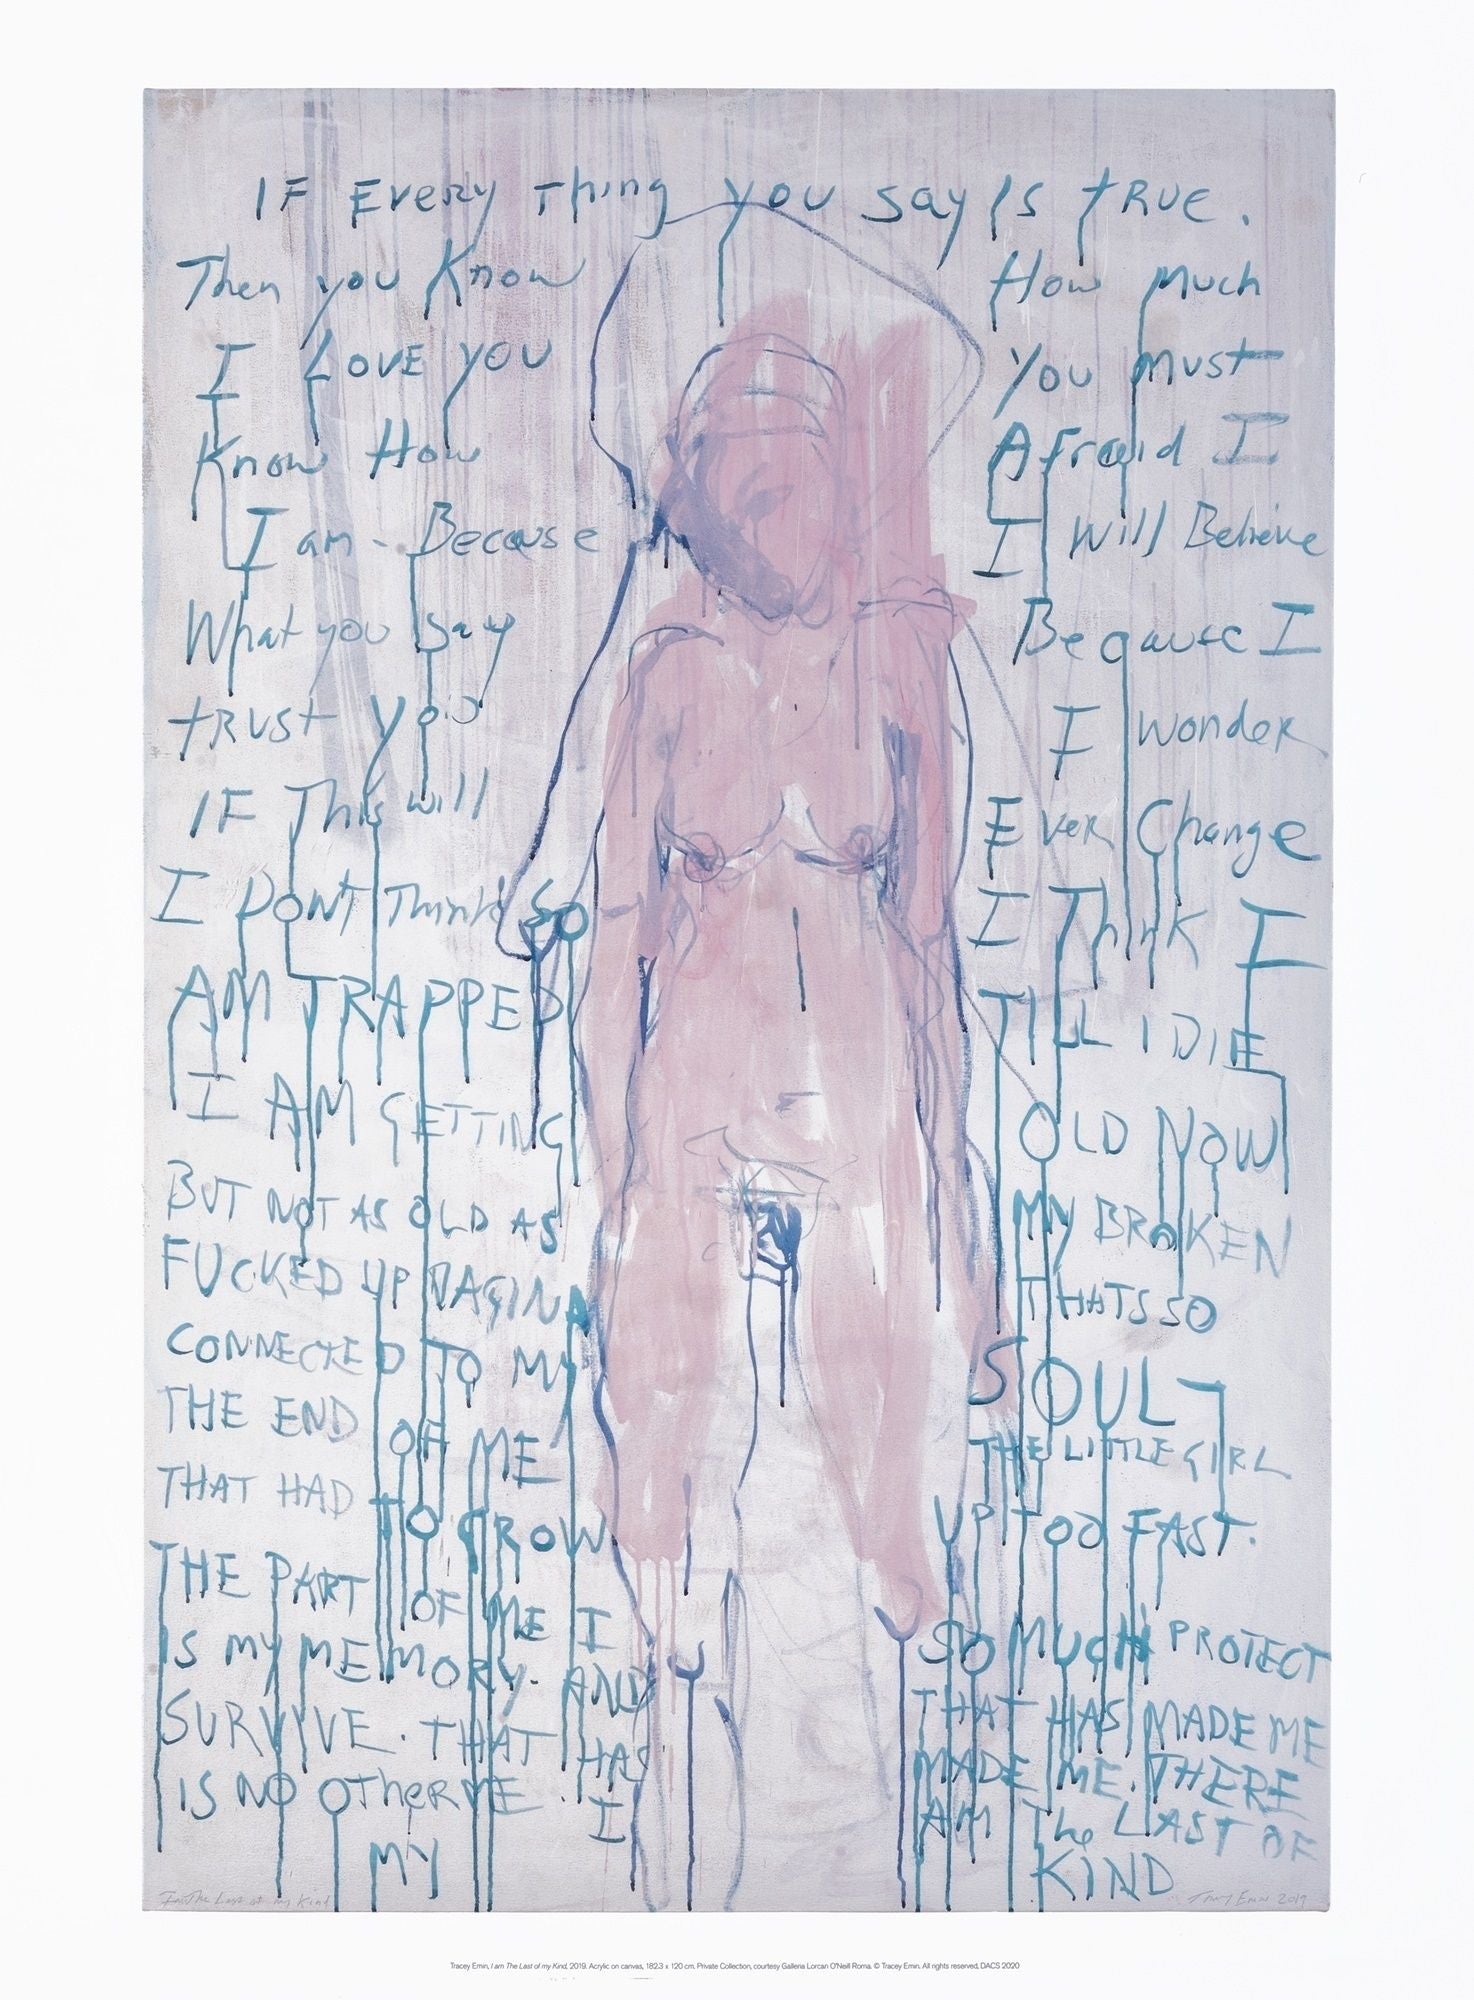 IF EVERY Thing you say Is tRUE.
Then you Know How Much
I LOVE YOU You Must
Know How Afraid I
I am - Because I Will Believe
What you say Because I
tRUST you I wonder
IF This will Ever Change
I DONT Think SO I Think I
AM TRAPPED TILL I DIE
I AM GETTING OLD NOW
BUT NOT AS OLD AS MY BROKEN
FUCKED UP VAGINA THATS SO
CONNECTED TO MY SOUL
THE END OF ME THE LITTLE GIRL
THAT HAD TO GROW UP TOO FAST.
THE PART OF ME I SO MUCH PROTECT
IS MY MEMORY. AND THAT HAS MADE ME
SURVIVE. THAT HAS MADE ME. THERE
IS NO OTHER ME. I AM The LAST OF
MY KIND
I am The Last of my Kind Tracey Emin 2019
Tracey Emin, I am The Last of my Kind, 2019. Acrylic on canvas, 182.3 x 120 cm. Private Collection, courtesy Galleria Lorcan O'Neill Roma. © Tracey Emin. All rights reserved, DACS 2020